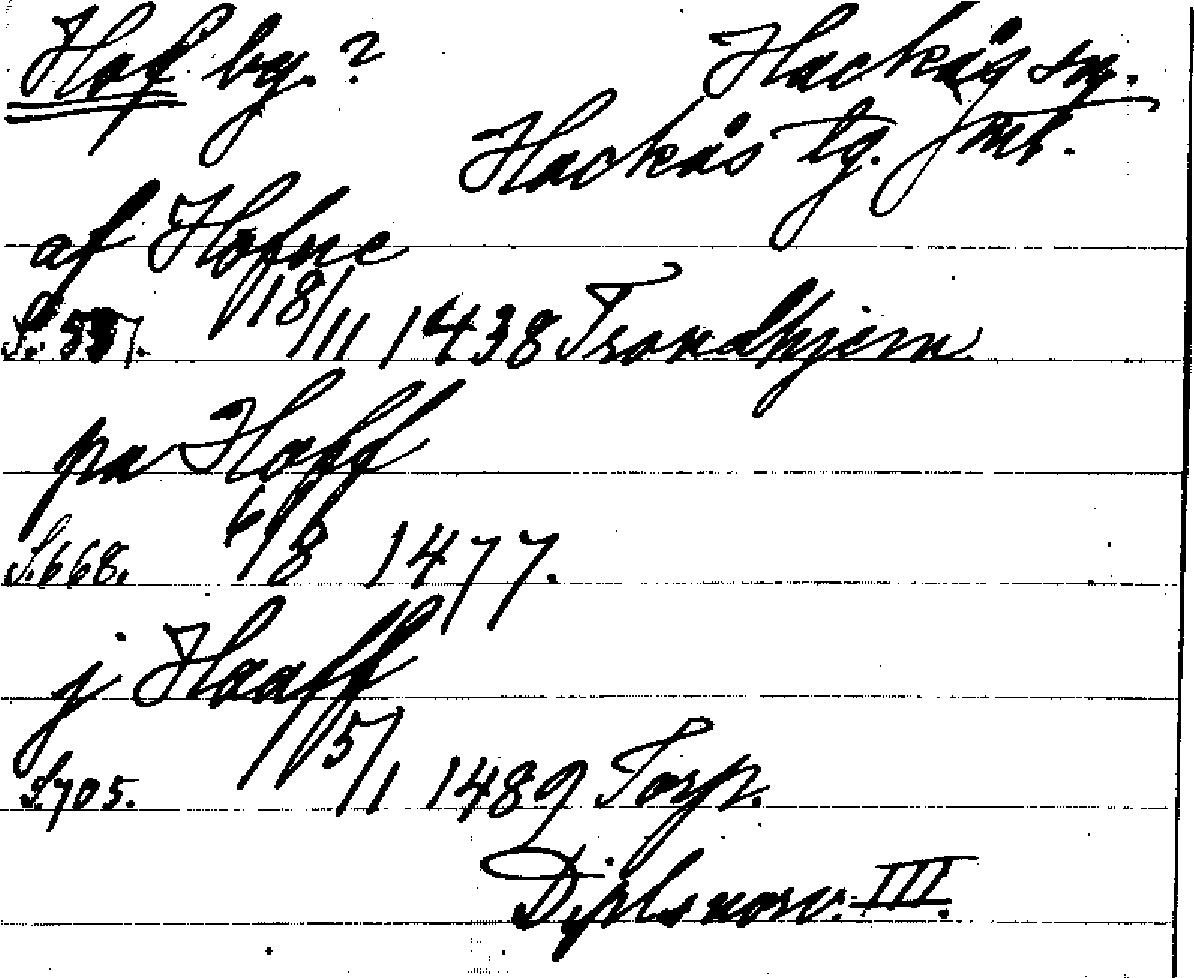 Hof by.? Hackås sn.
Hackås tg. Jmt.
af Hofne
18/11 1438 Trondhjem
på Hoff
S.668. 6/8 1477.
j Haaff
S.705. 15/1 1489 Torp.
Dipl. norv. III.